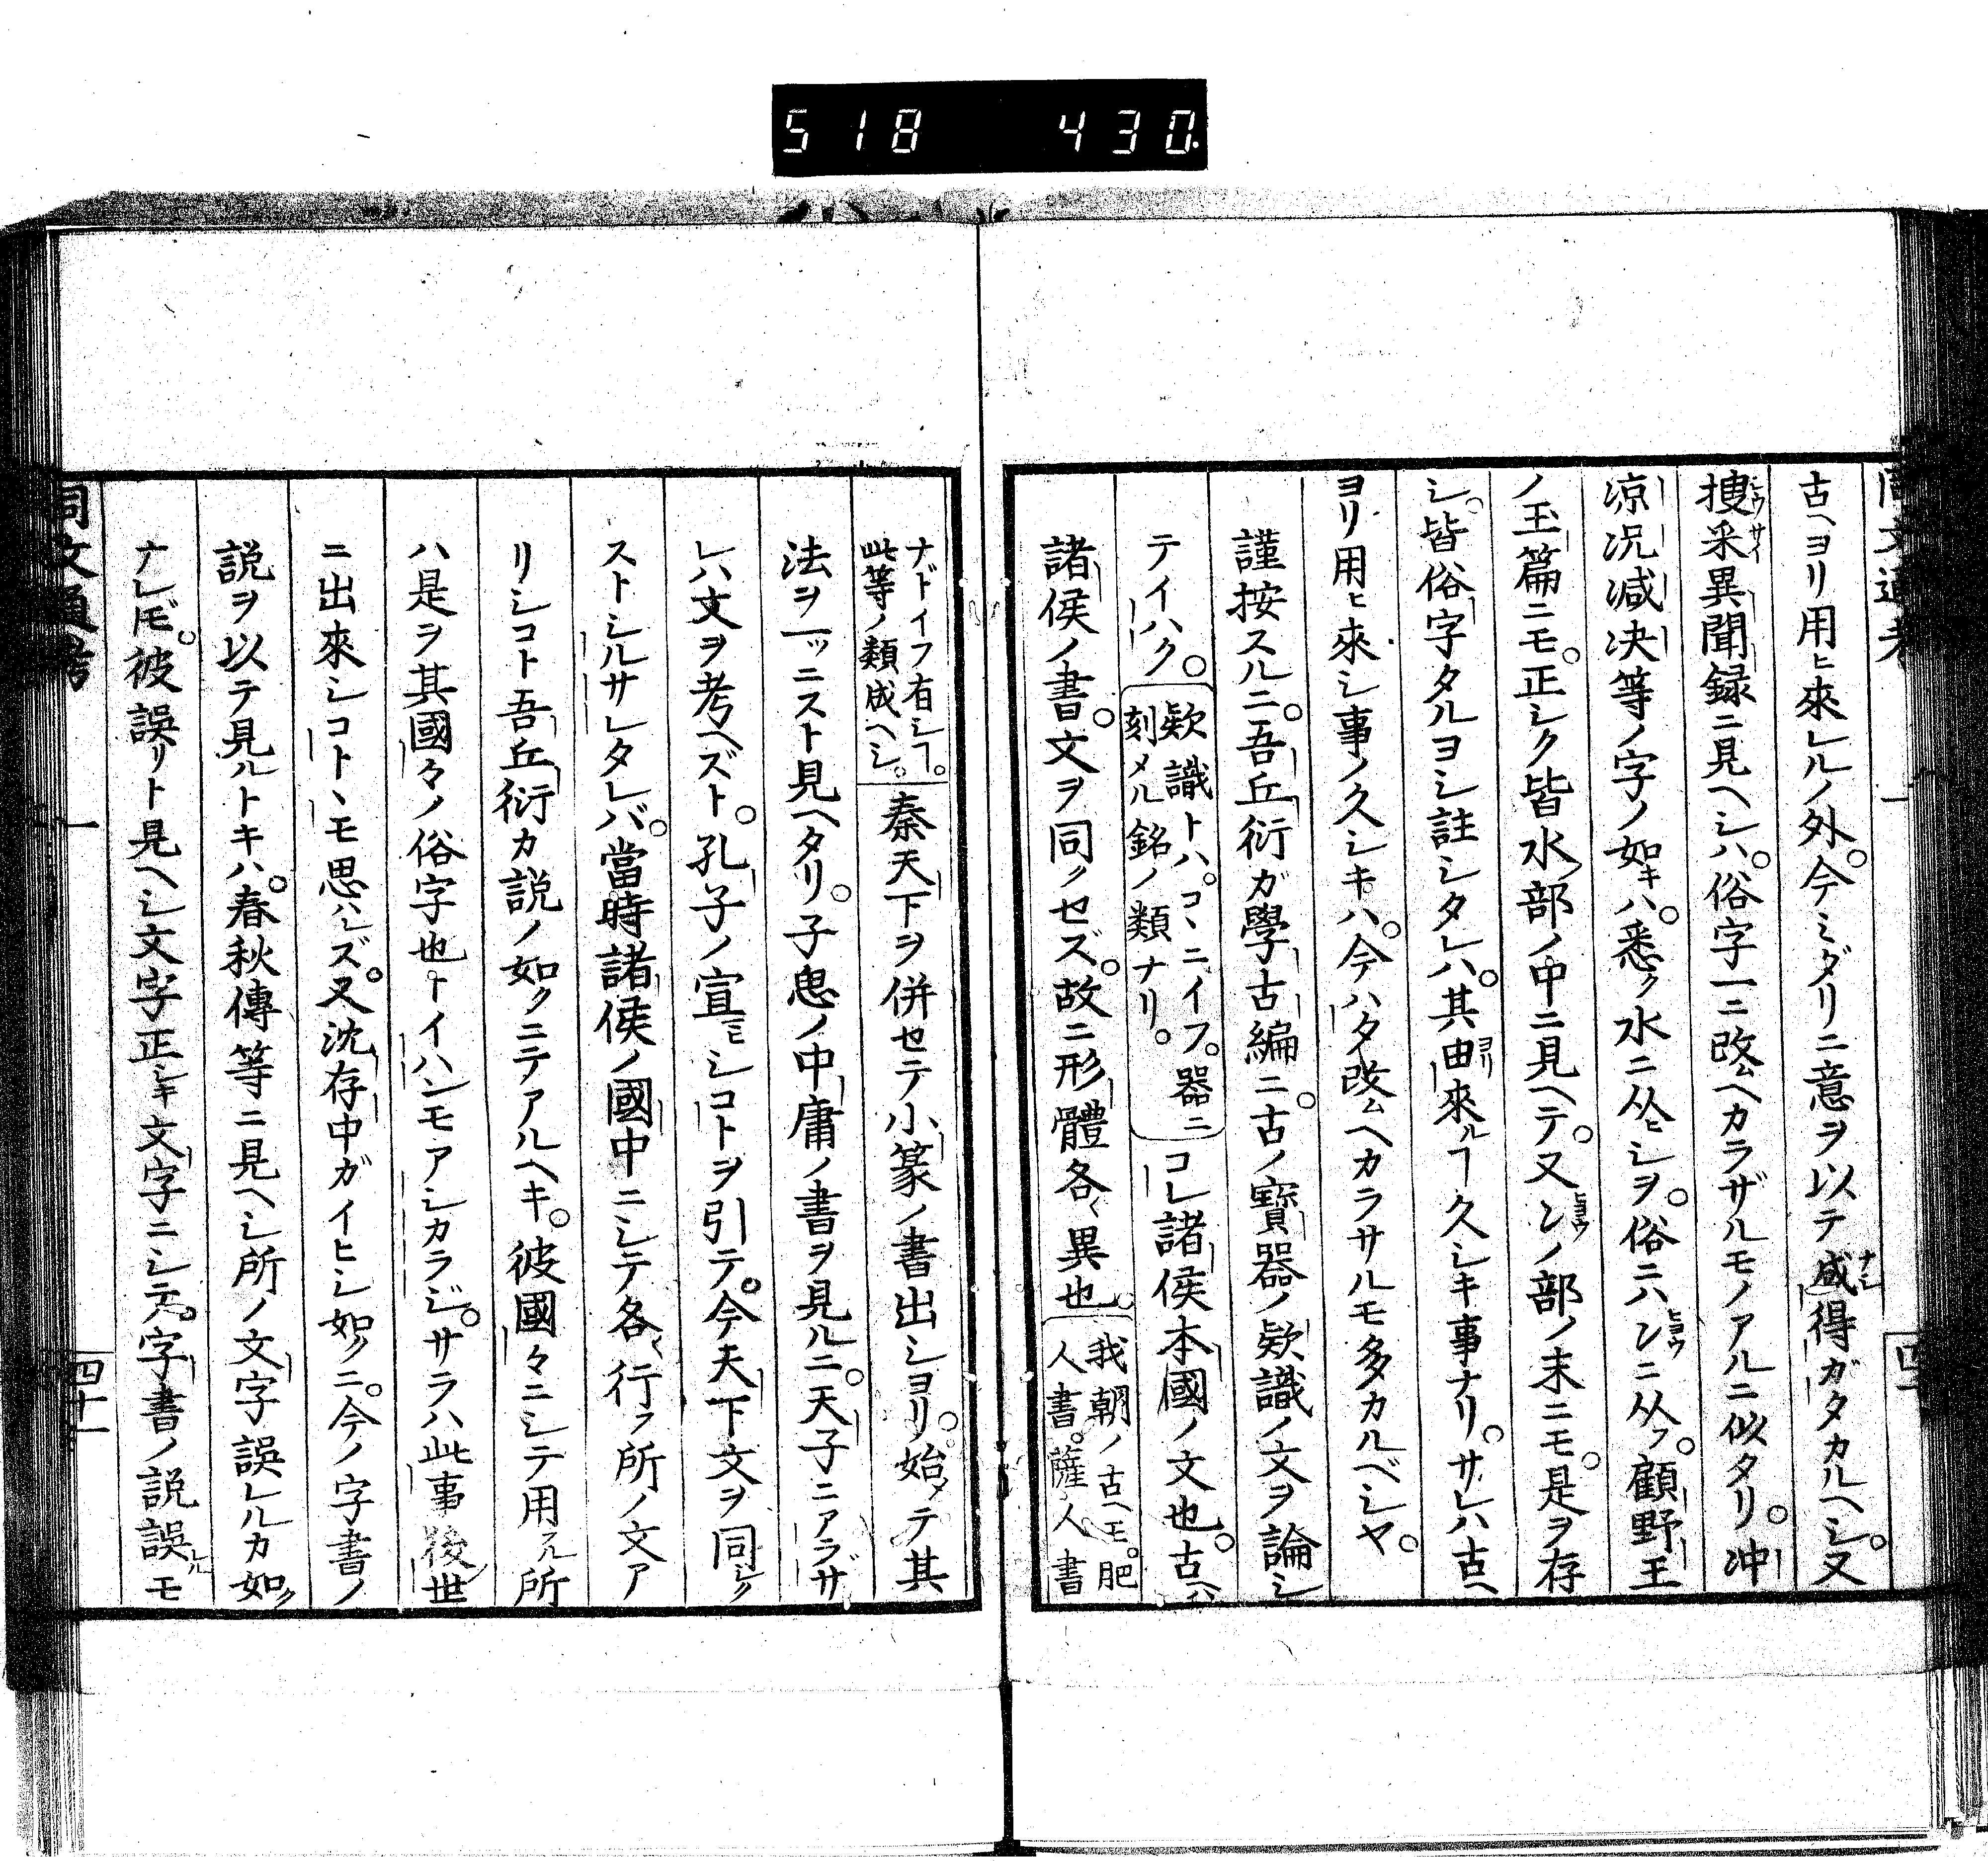 518 430
同文通考 一
古ヘヨリ用ヒ來レルノ外。今ミダリニ意ヲ以テ減得ガタカルヘシ。又
搜采異聞録ニ見ヘシハ。俗字一ニ改ムヘカラザルモノアルニ似タリ。冲
凉况减决等ノ字ノ如キハ。悉ク水ニ从ヒシヲ。俗ニハ冫ニ从フ。顧野王
ノ玉篇ニモ。正シク皆水部ノ中ニ見ヘテ。又冫ノ部ノ末ニモ。是ヲ存
シ。皆俗字タルヨシ註シタレハ。其由來ルヿ久シキ事ナリ。サレハ古ヘ
ヨリ用ヒ來シ事ノ久シキハ。今ハタ改ムヘカラサルモ多カルベシヤ。
謹按スルニ。吾丘衍ガ學古編ニ。古ノ寳器ノ欵識ノ文ヲ論シ
テイハク。欵識トハ。コヽニイフ。器ニ
刻メル銘ノ類ナリ。
コレ諸侯本國ノ文也。古ハ
諸侯ノ書。文ヲ同クセズ。故ニ形體各〻異也。我朝ノ古ヘモ。肥
人書。薩人書
ナドイフ有シヿ。
此等ノ類成ヘシ。
秦天下ヲ併セテ小篆ノ書出シヨリ。始メテ其
法ヲ一ツニスト見ヘタリ。子思ノ中庸ノ書ヲ見ルニ。天子ニアラザ
レハ文ヲ考ヘズト。孔子ノ宣ヒシコトヲ引テ。今天下文ヲ同シク
ストシルサレタレバ。當時諸侯ノ國中ニシテ各〻行フ所ノ文ア
リシコト吾丘衍カ説ノ如クニテアルヘキ。彼國々ニシテ用ル所
ハ是ヲ其國々ノ俗字也トイハンモアシカラジ。サラハ此事後世
ニ出來シコトヽモ思ハレズ。又沈存中ガイヒシ如クニ。今ノ字書ノ
説ヲ以テ見ルトキハ。春秋傳等ニ見ヘシ所ノ文字誤レルカ如ク
ナレ𪜈。彼誤リト見ヘシ文字正シキ文字ニシテ。字書ノ説誤レルモ
同文通考 一 四十一